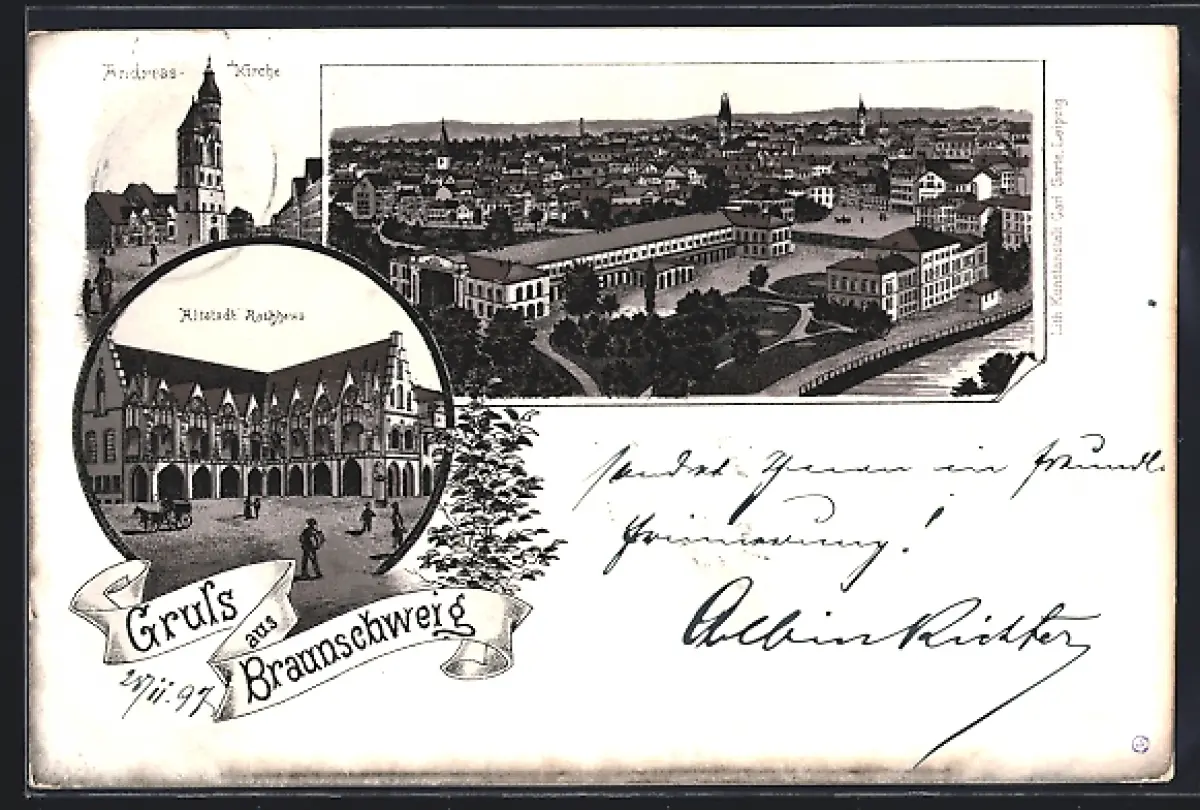 Andreas- Kirche
Altstadt Rathhaus
Lith. Kunstanstalt Carl Garte, Leipzig
Gruss
aus
Braunschweig
sendet Ihnen in freundl.
Erinnerung!
Albin Richter